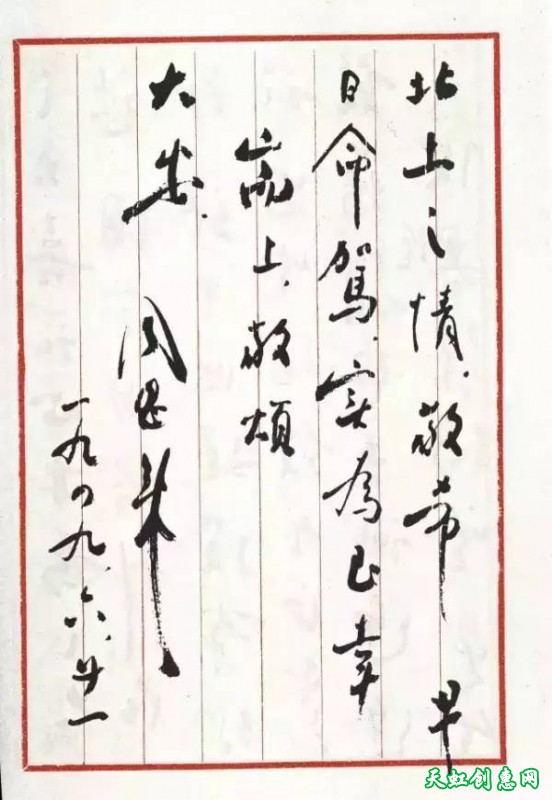 北上之情，敬希 早
日命駕，实為至幸
耑上，敬頌
大安． 周恩来
一九四九、六、廿一
天虹创意网